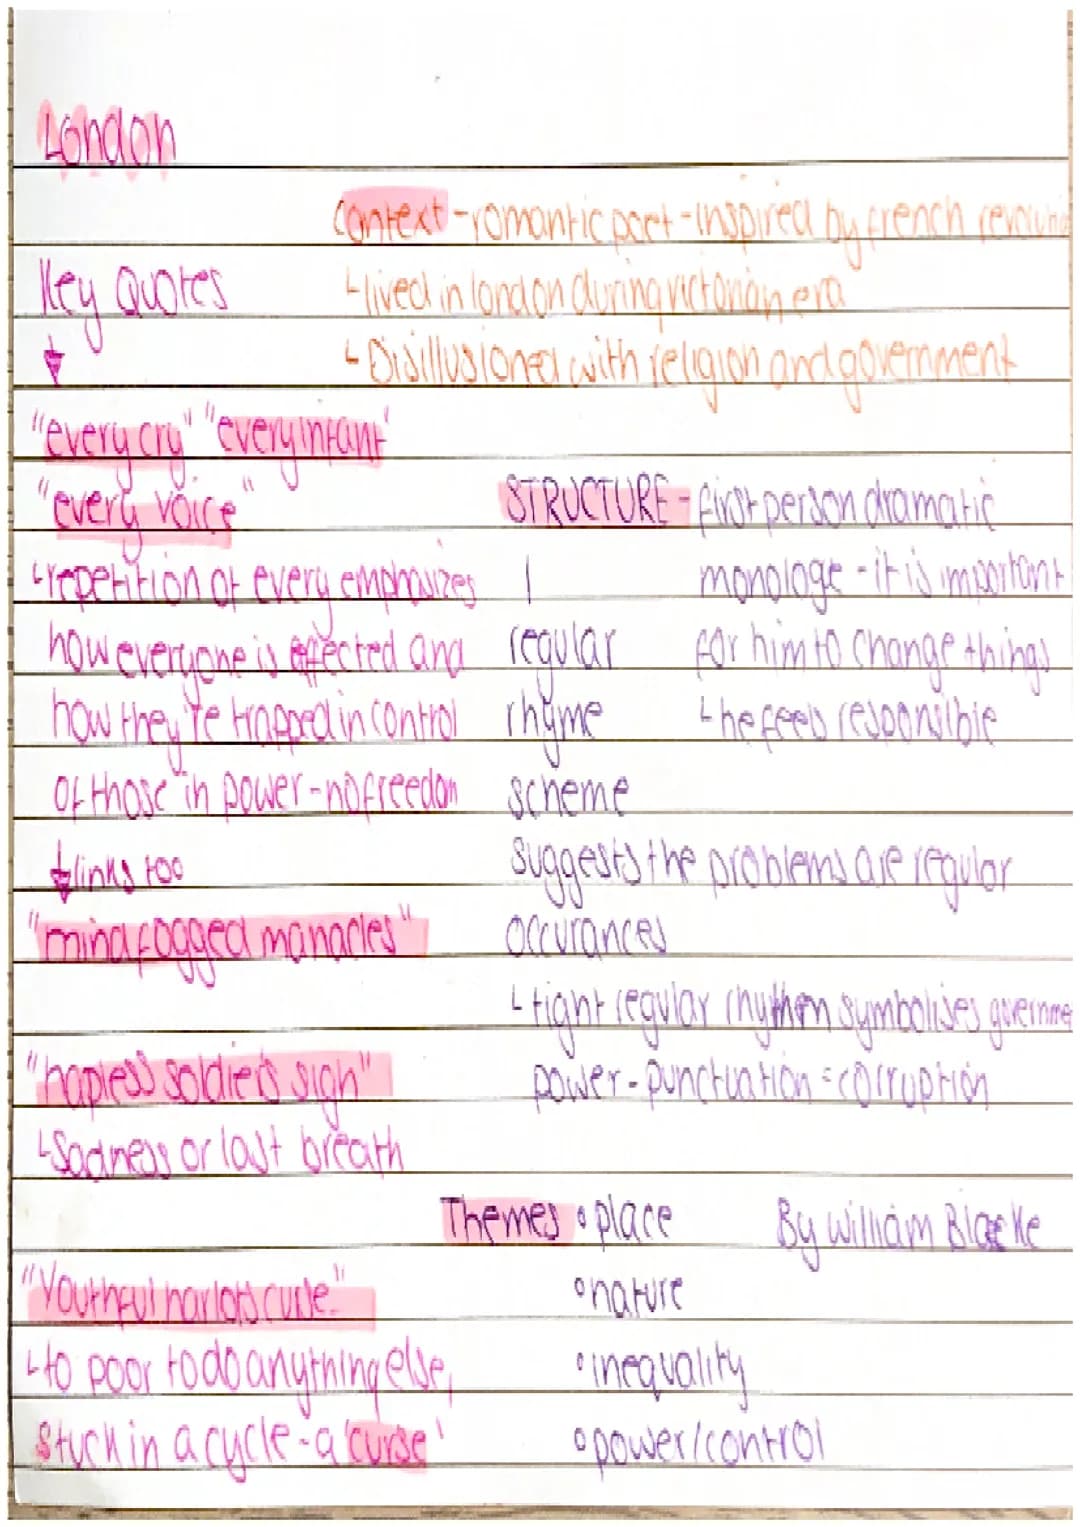 London
Context - romantic poet - inspired by french
Key Quotes
↳ lived in london during victorian era
↳ Disillusioned with religion and government
"every cry" "every infant"
"every voice"
↳ repetition of every emphasizes
how everyone is affected and
how they're trapped in control
of those in power - no freedom
↓ links too
"mind fogged manacles"
"hapless soldiers sigh"
↳ Sadness or last breath
"Youthful harlots curse"
↳ to poor to do anything else,
stuck in a cycle - a 'curse'
STRUCTURE - first person dramatic
monologe - it is important
for him to change things
↳ he feels responsible
regular
rhyme
scheme
suggests the problems are regular
occurances
↳ tight regular symbolises governme
power - punctuation = corruption
Themes • place
• nature
• inequality
• power/control
By William